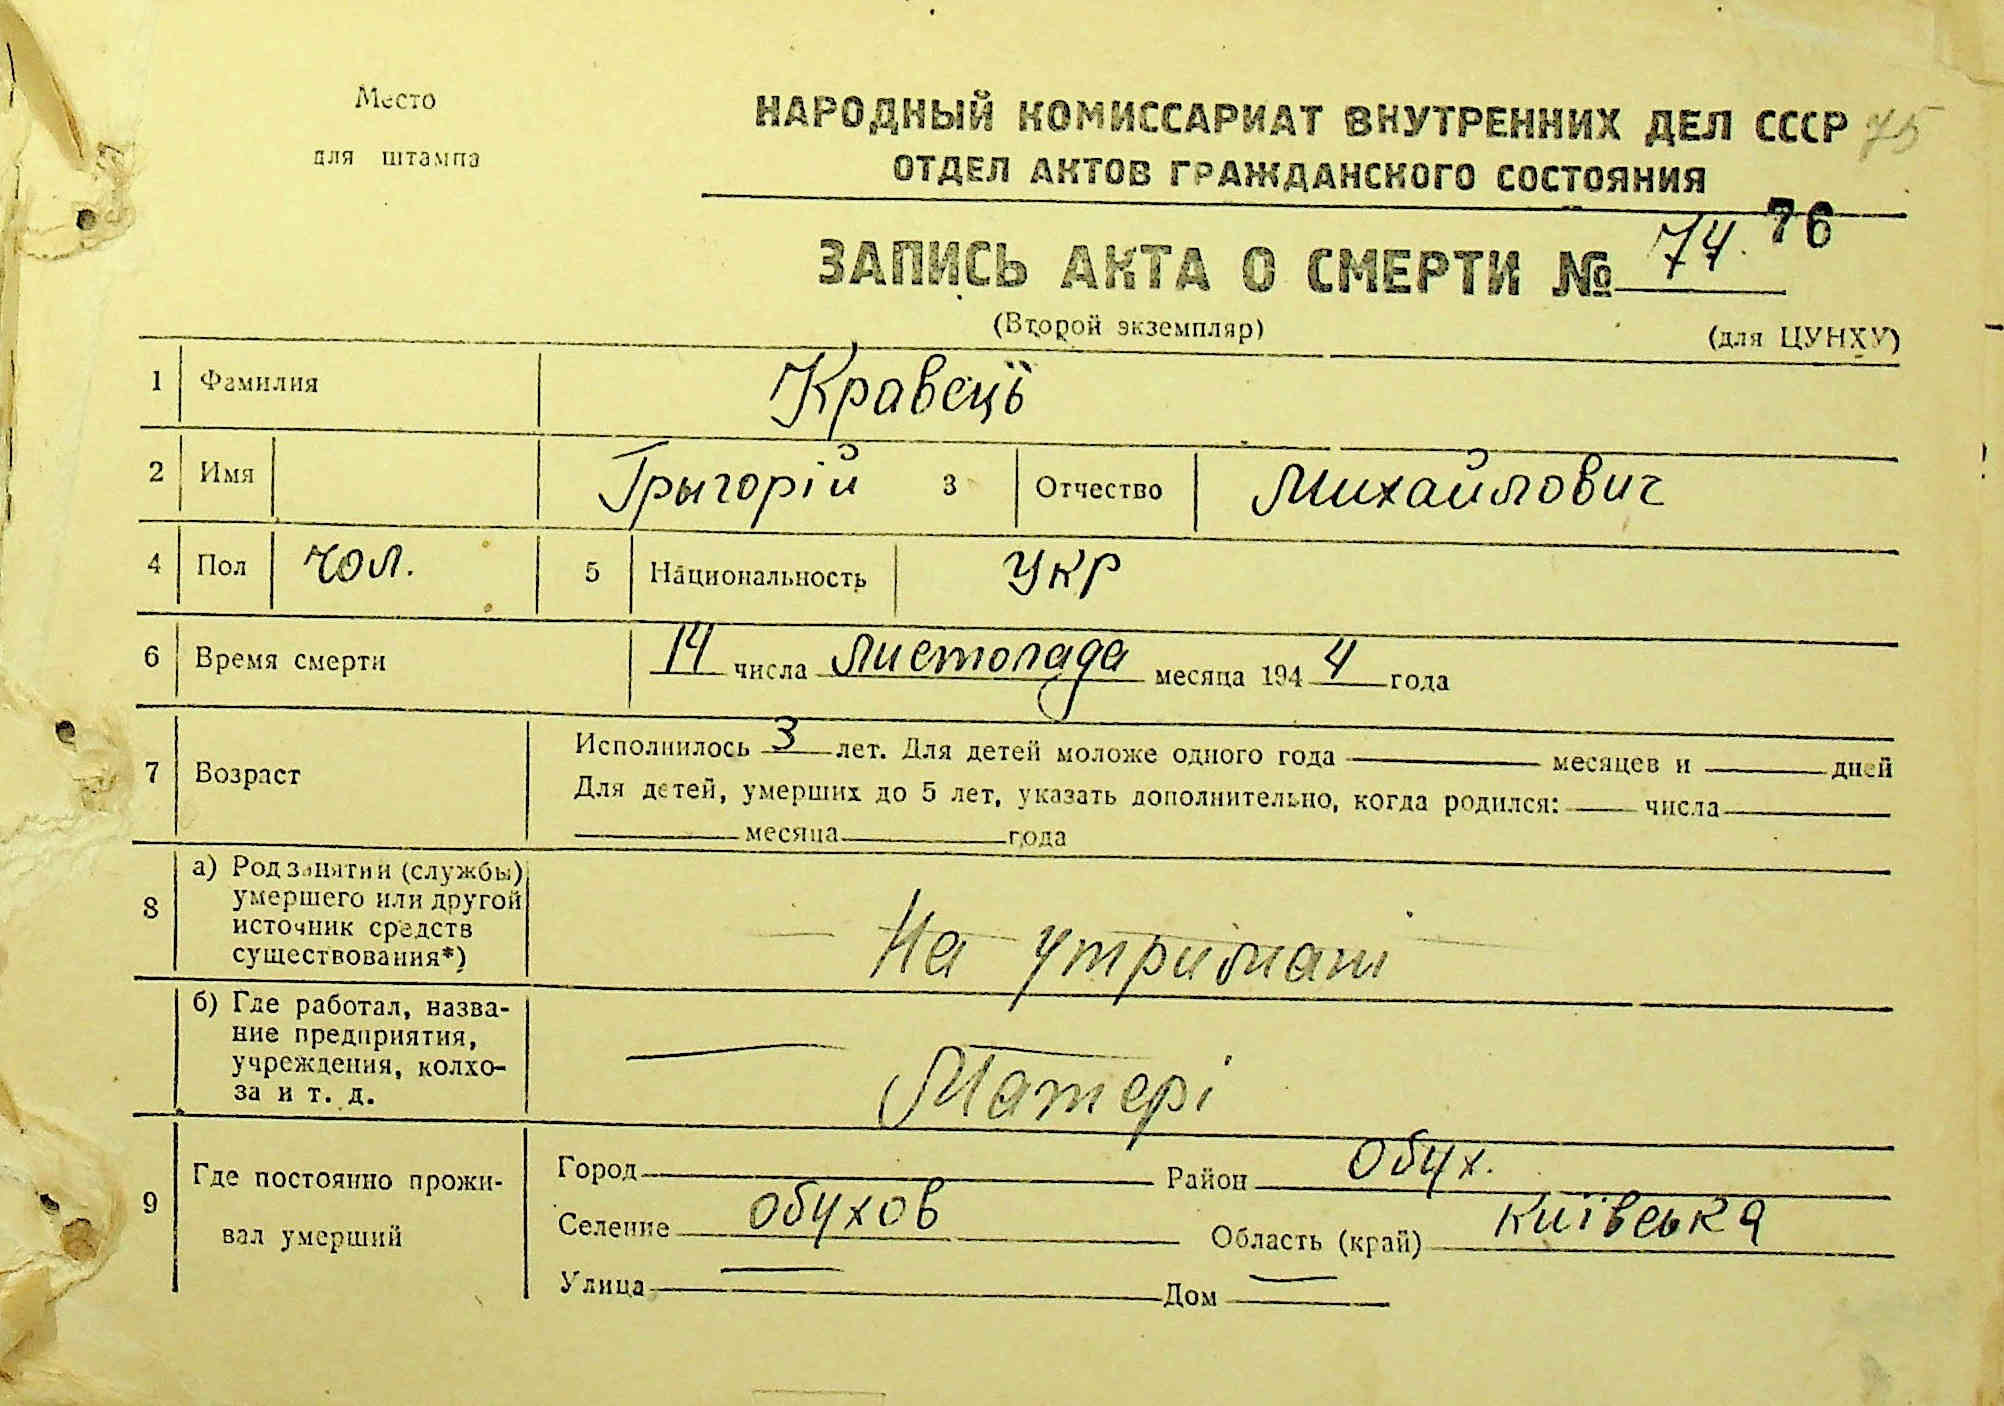 Место
для штампа
НАРОДНЫЙ КОМИССАРИАТ ВНУТРЕННИХ ДЕЛ СССР 75
ОТДЕЛ АКТОВ ГРАЖДАНСКОГО СОСТОЯНИЯ
76
ЗАПИСЬ АКТА О СМЕРТИ № 74.
(Второй экземпляр) (для ЦУНХУ)
1 Фамилия Кравець
2 Имя Грыгорій 3 Отчество Михайлович
4 Пол чол. 5 Национальность укр
6 Время смерти 14 числа листопада месяца 1944 года
Исполнилось 3 лет. Для детей моложе одного года месяцев и дней
7 Возраст
Для детей, умерших до 5 лет, указать дополнительно, когда родился: числа
месяца года
8 а) Род занятий (службы)
умершего или другой
источник средств
существования*)
На утримані
б) Где работал, назва-
ние предприятия,
учреждения, колхо-
за и т. д.
Матері
9 Где постоянно прожи-
вал умерший
Город Район Обух.
Селение Обухов Область (край) Київська
Улица — Дом —